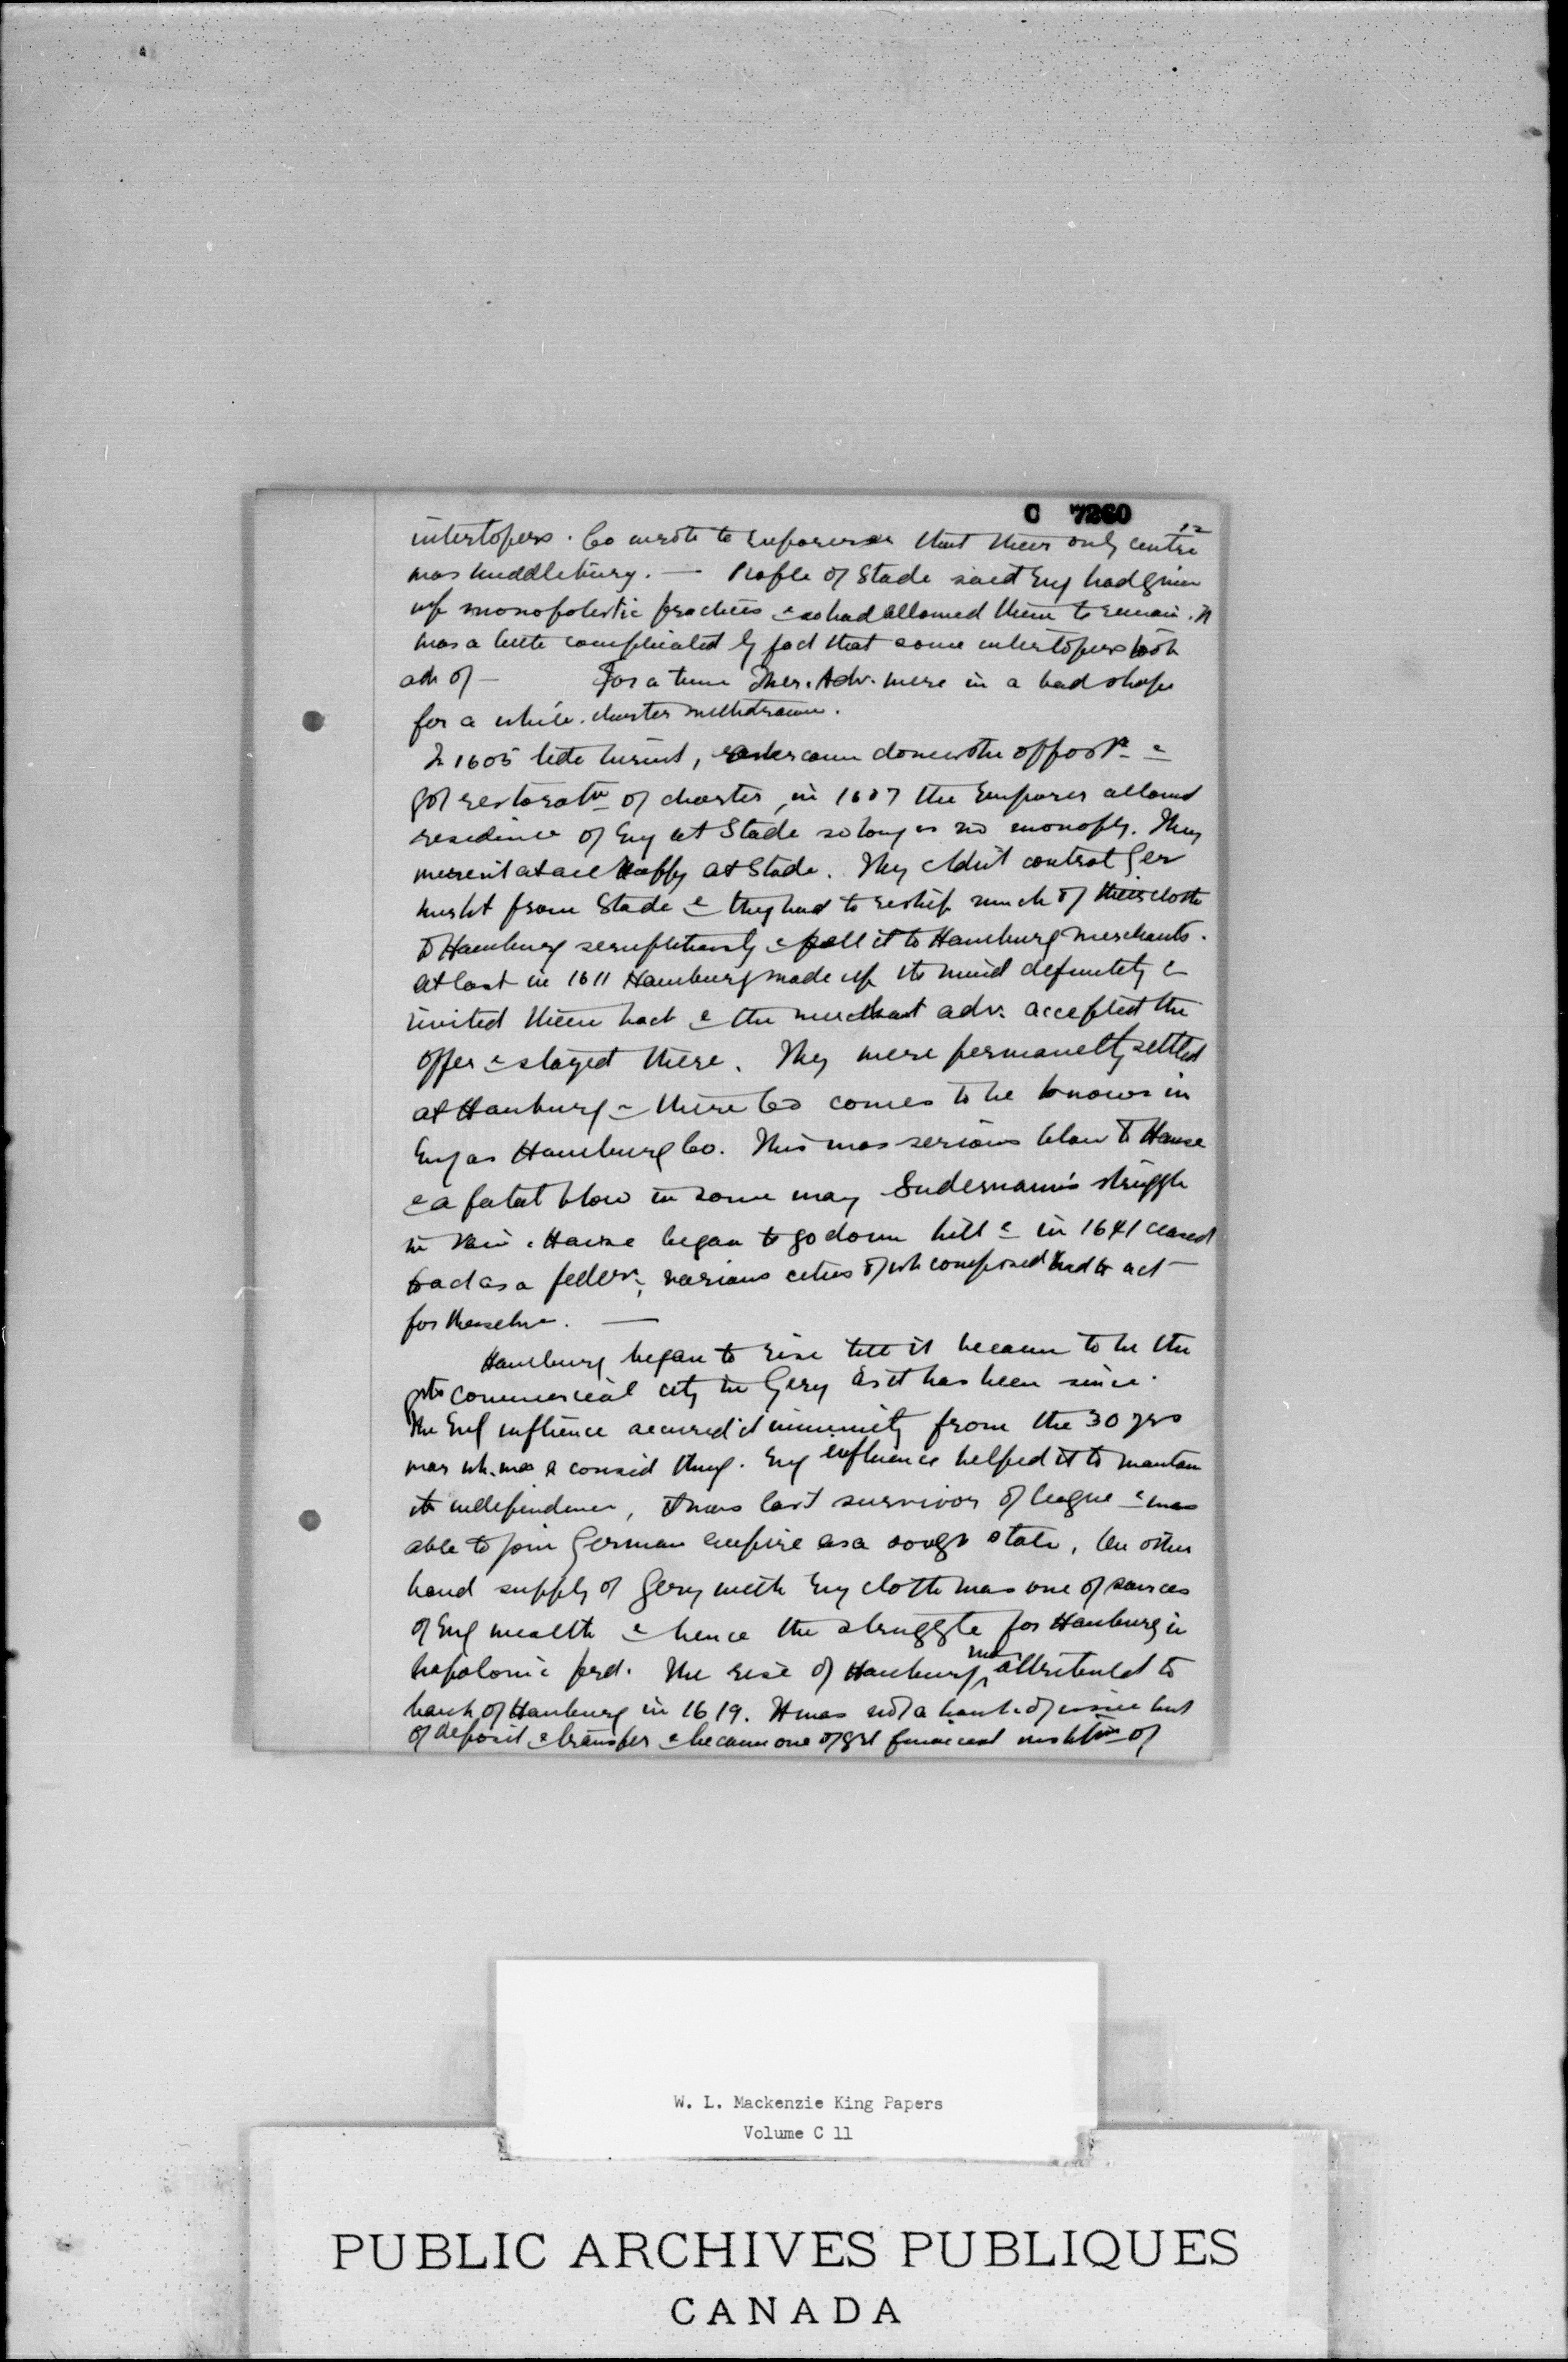 C 7260
12
interlopers. Co wrote to Emperor that their only centre
was Middleburg. — People of Stade said Eng had given
up monopolistic practices & so had allowed them to remain. It
was a little complicated by fact that some interlopers took
adv of — For a time Mer. Adv. were in a bad shape
for a while. charter withdrawn.
In 1605 tide turned, came down the oppos^n &
got restorat^n of charter, in 1607 the Emperor allowed
residence of Eng at Stade so long as no monoply. They
weren't at all happy at Stade. They cldn't control Ger
markt from Stade & they had to reship much of their cloth
to Hamburg surruptitiously & sell it to Hamburg merchants.
At last in 1611 Hamburg made up its mind definitely &
invited them back & the merchant adv. accepted the
offer & stayed there. They were permanetly settled
at Hamburg & there Co comes to be known in
Eng as Hamburg Co. This was serious blow to Hanse
& a fatal blow in some way Sudermann's struggle
in vain. Hanse began to go down hill & in 1641 ceased
to act as a feder^n, various cities of wh composed had to act
for themselve. —
Hamburg began to rise till it became to be the
grts commercial city in Gery as it has been since.
The Eng influence secured it immunity from the 30 yrs
war wh. was a consid thing. Eng influence helped it to mantain
its independence, it was last survivor of league & was
able to join German empire as a sovgn state, On other
hand supply of Gery with Eng cloth was one of sources
of Eng wealth & hence the struggle for Hamburg in
Napolonic perd. The rise of Hamburg not attributed to
bank of Hamburg in 1619. It was not a bank of issue but
of deposit & transfer & became one of grt financial instit^ns of
W. L. Mackenzie King Papers
Volume C 11
PUBLIC ARCHIVES PUBLIQUES
CANADA